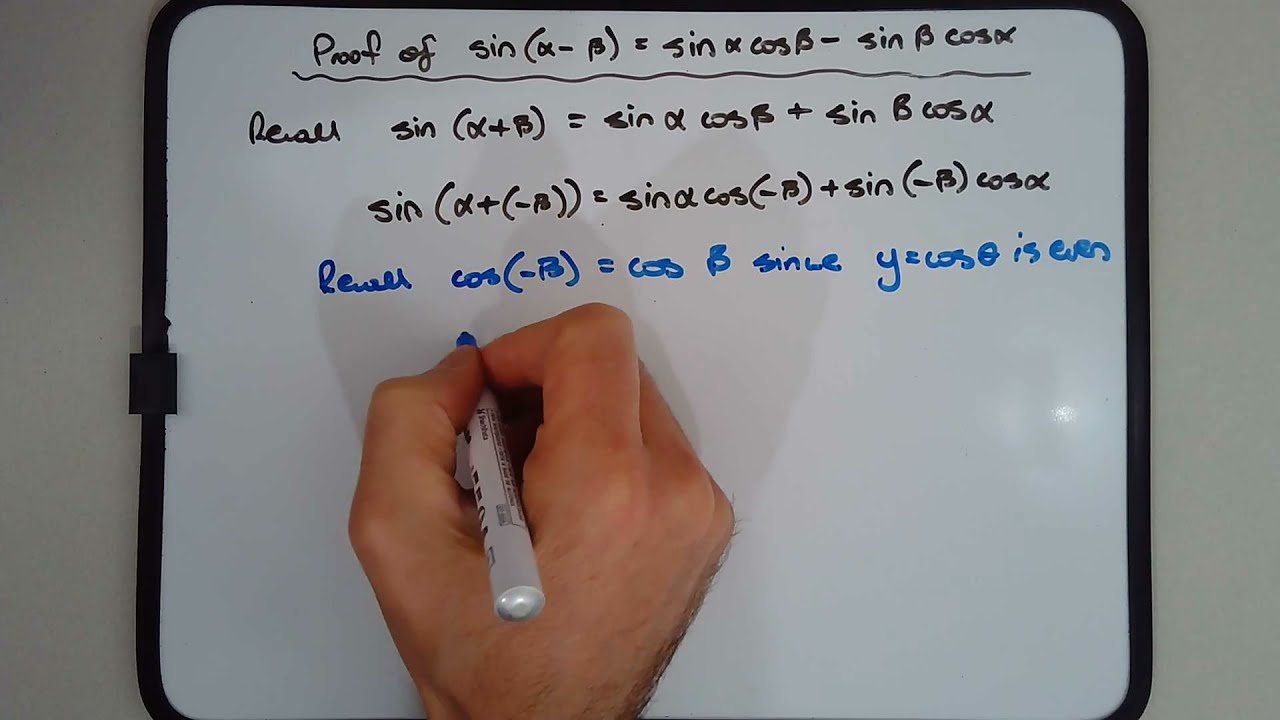 Proof of sin(α-β) = sin α cosβ - sin β cosα
Recall sin (α+β) = sin α cosβ + sin β cosα
sin (α+(-β)) = sinα cos(-β) + sin (-β) cosα
Recall cos(-β) = cos β since y=cosθ is even